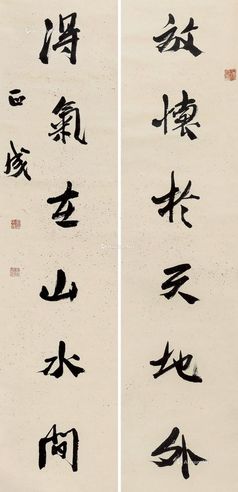 放懷於天地外
得氣在山水間
正成